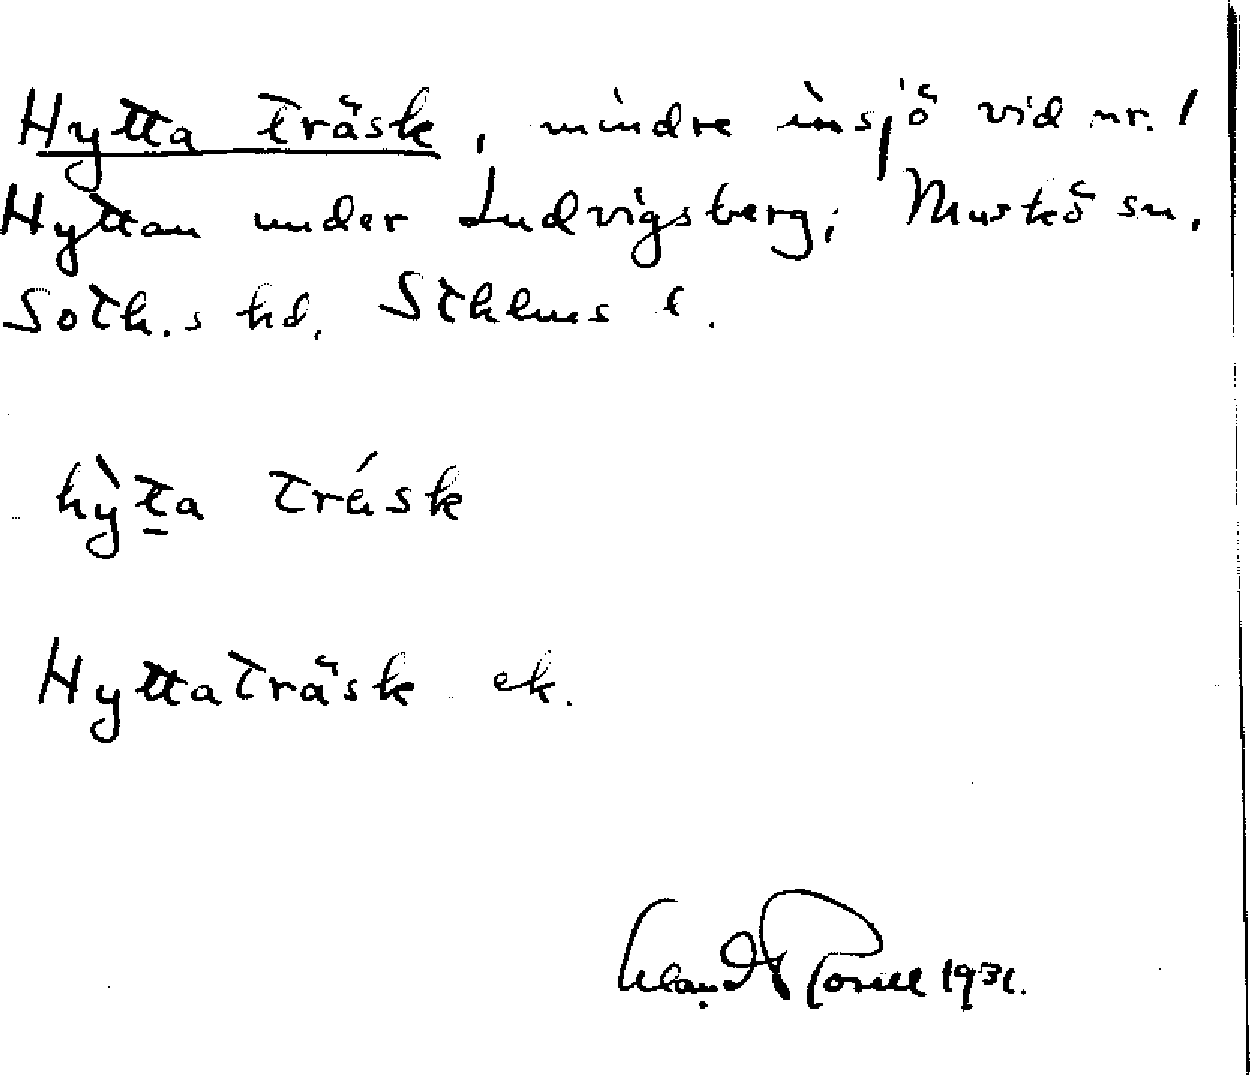 Hytta träsk, mindre insjö vid nr. 1
Hyttan under Ludvigsberg, Muskö sn.
Soth.s hd. Sthlms l.
hỳt̠a trä́sk
Hyttaträsk ek.
1931.